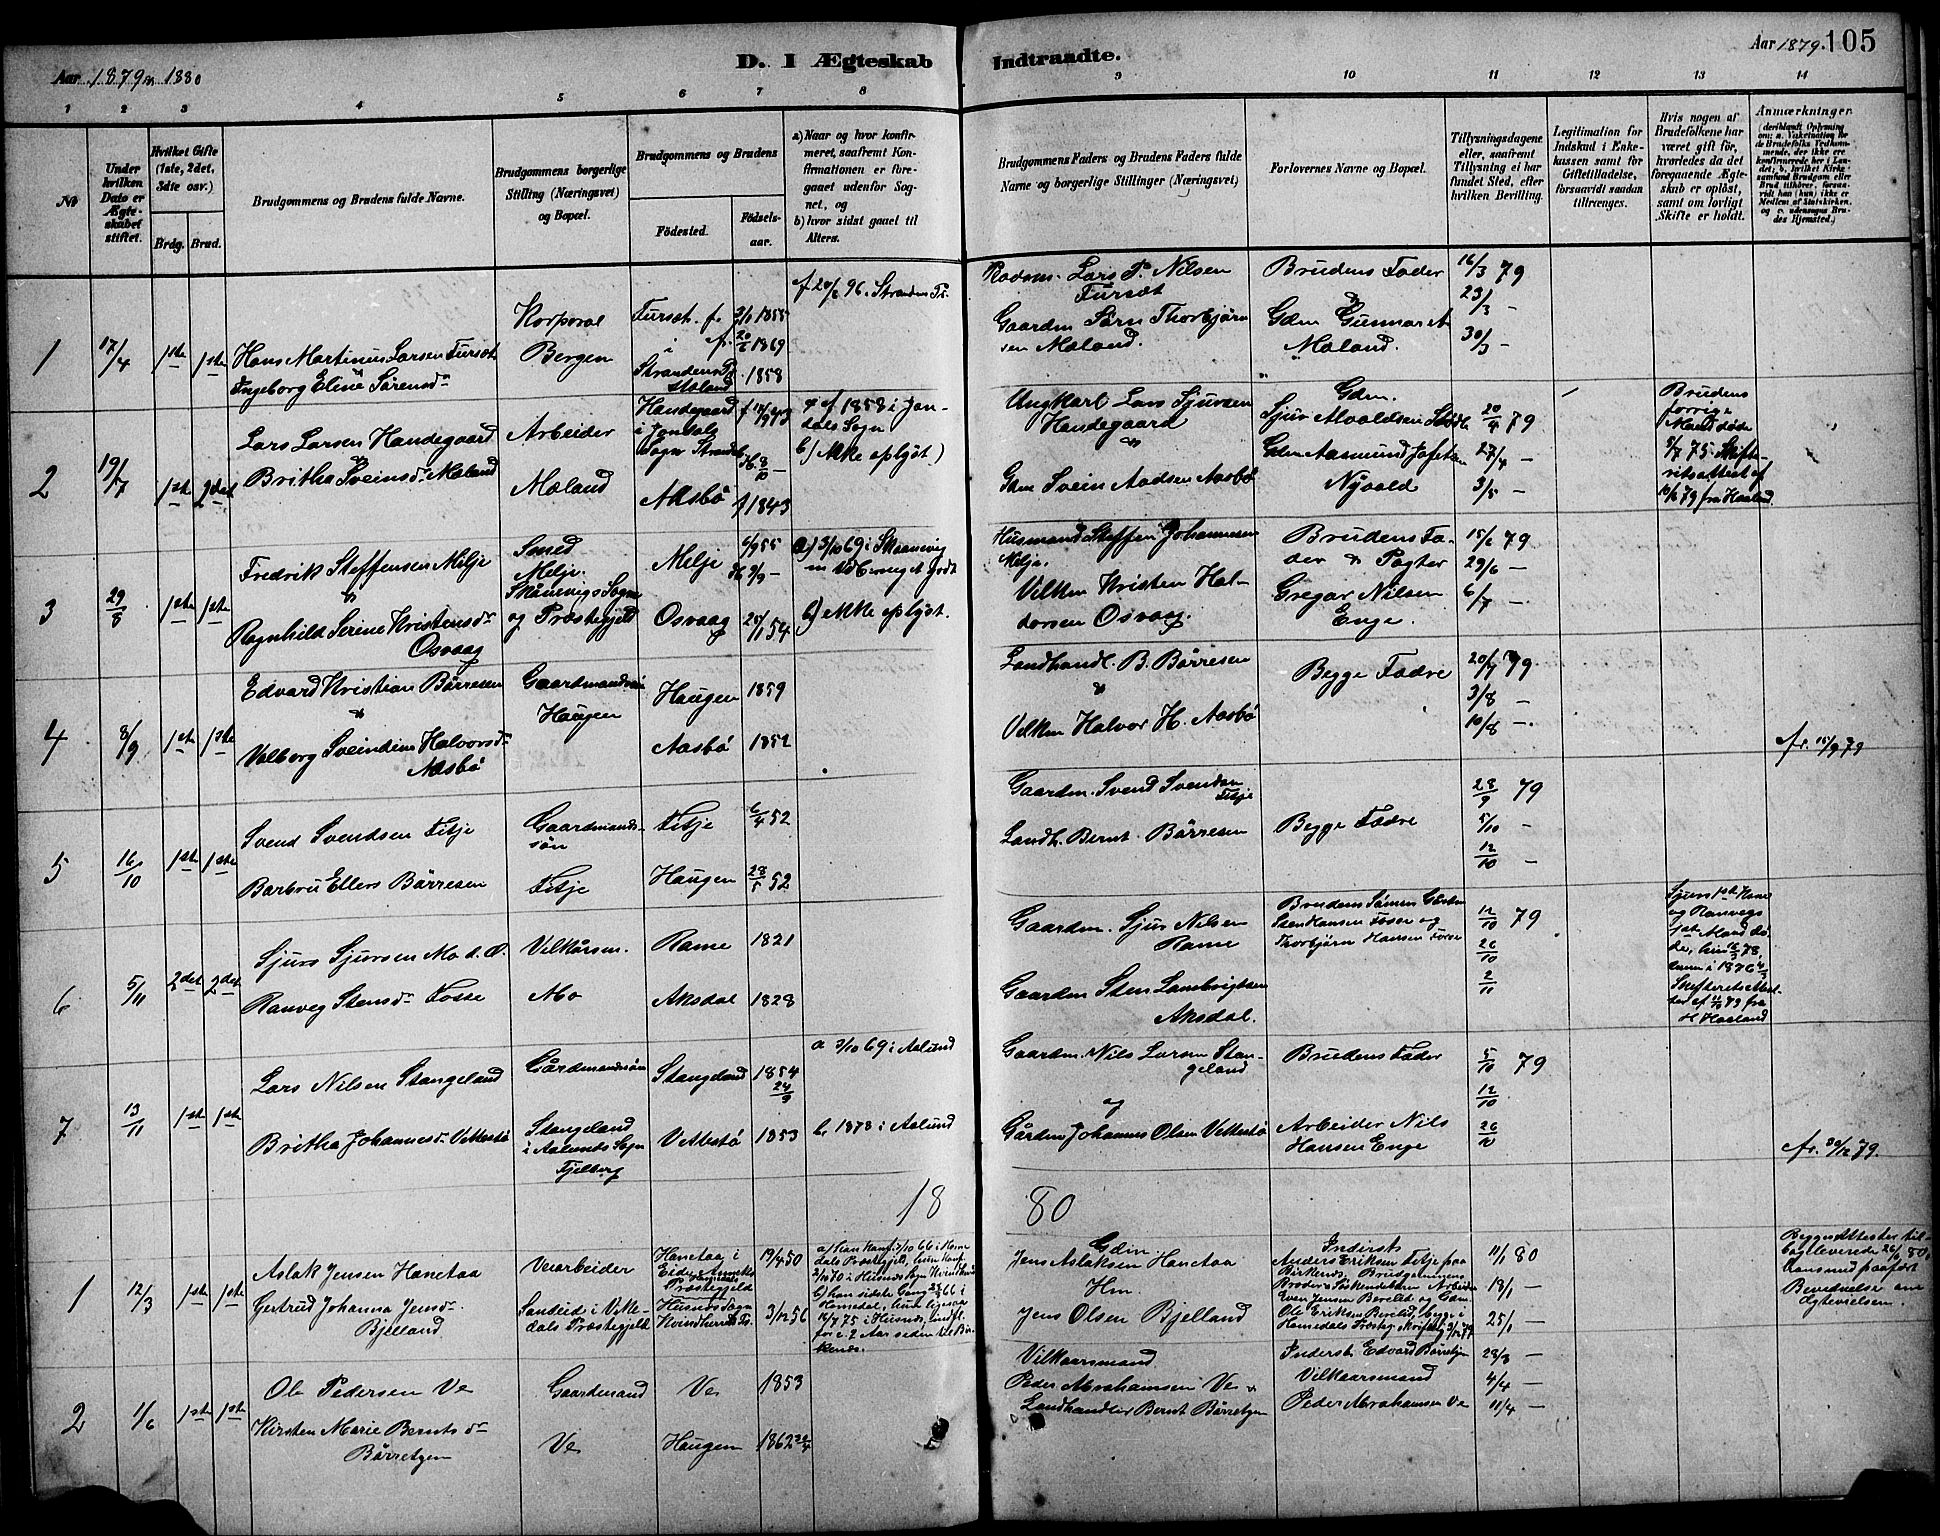 Aar 1879 n 1880
D. I Ægteskab Indtraadte.
Aar 1879. 105
1 2 3 4 5 6 7 8 9 10 11 12 13 14
No
Under hvilken Dato er Ægteskabet stiftet.
Hvilket Gifte (1ste, 2det, 3dte osv.)
Brdg. Brud.
Brudgommens og Brudens fulde Navne.
Brudgommens borgerlige Stilling (Næringsvei) og Bopæl.
Brudgommens og Brudens
Fødested. Fødselsaar.
a) Naar og hvor konfirmeret, saafremt Konfirmationen er foregaaet udenfor Sognet, og
b) hvor sidst gaaet til Alters.
Brudgommens Faders og Brudens Faders fulde Navne og borgerlige Stillinger (Næringsvei)
Forlovernes Navne og Bopæl.
Tillysningsdagene eller, saafremt Tillysning ei har fundet Sted, efter hvilken Bevilling.
Legitimation for Indskud i Enkekassen samt for Giftetilladelse, forsaavidt saadan tiltrænges.
Hvis nogen af Brudefolkene har været gift før, hvorledes da det foregaaende Ægteskab er opløst, samt om lovligt Skifte er holdt.
Anmærkninger (deriblandt Oplysning om: a. Vakcination for de Brudefolks Vedkommende, der ikke ere konfirmerede her i Landet; b. hvilket Kirkesamfund Brudgom eller Brud tilhører, forsaavidt han (hun) ikke er Medlem af Statskirken, og c. udensogns Brudes Hjemsted.)
1
17/4
1ste 1ste
Hans Martinus Larsen Fursæt
Ingeborg Eline Sørensd.
Korporal
Bergen
Fursæt. f.
i
Strandens P.
Mæland
1855
1869
1858
Strandens P.
Lars P. Nilsen
Fursæt
Gaardm. Sørn Thorbjørnsen Mæland.
Brudens Fader
&
Gdm Gunnar A
Mæland.
16/3 79
23/3 -
30/3 -
2
19/7
1ste 2det
Lars Larsen Handegaard
Britha Sveinsd. Mæland
Arbeider
Mæland
Handegaard
i Jondals
Sogn
Aksbø
1843
af 1858 i Jondals Sogn
b) Ikke oplyst.)
Ungkarl Lars Sjursen
Handegaard
Gdm Svein Aadsen Aasbø
Gdm.
Sjur
Gdm Aasmund
Nyvold
20/4 79
27/4 -
3/5 -
Brudens
forrige
Mand døde
Skifteritsattest af
79 fra Haaland
3
29/8
1ste 1ste
Fredrik Steffensen Milje
Ragnhild Serine Kristensd.
Osvaag
Smed
Milje.
Skånevigs Sogn
og Præstegjeld
Milje
Osvaag
6/9 55
54
a) 3/10 69 i Skaanevig
b) ikke oplyst.
Husmand Steffen Johannesen
Milje.
Velkm Kristen Haldorsen Osvaag.
Brudens Fader & Pagter
Gregar Nilsen
Enge.
15/6 79
29/6 -
6/7 -
4
8/9
1ste 1ste
Edvard Kristian Børresen
Valborg Sveindine Halvorsd.
Aasbø
Gaardmandssøn
Haugen
Haugen
Aasbø
1859
1852
Landhandl. B. Børresen
Velkm Halvor H. Aasbø
Begge Fædre
20/7 79
3/8 -
10/8 -
fr. 15/9 79
5
16/10
1ste 1ste
Svend Svendsen Titje
Barbru Ellers Børresen
Gaardmandssøn
Titje
Titje
Haugen
6/4 52
28/5 52
Gaardm. Svend Svendsen
Titje
Landh. Bernt. Børresen
Begge Fædre
28/9 79
5/10 -
12/10 -
6
5/11
2det 2det
Sjurs Sjursen Mo d. Æ.
Ranveg Stensd. Fosse
Velkårsm.
Mo
Rame
Aksdal
1821
1828
Gaardm. Sjur Nilsen
Rame
Gaardm Sten Lambrigtsen
Aksdal.
Brudens Sønner
Hansen Fosse og
Thorbjørn Hansen Fosse
12/10 79
26/10
2/11
Sjurs 1ste Kone
og Ranvegs
1ste Mand døde, hun 78,
i 1876
Skifteretsattester af 79 fra
H Haaland
7
13/11
1ste 1ste
Lars Nilsen Stangeland
Britha Johannesd. Vettestø
Gårdmandssøn
Stangeland
i Aalunds Sogn
Fjelberg
Stangeland
Vettestø
1854
24/9
1853
a 3/10 69 i Aalund
b. 1878 i Aalund
Gaardm. Nils Larsen Stangeland
og
Gårdm Johannes Olsen Vettestø
Brudens Fader
Arbeider Nils
Hansen Enge
5/10 79
12/10
26/10
fr. 30/12 79.
18 80
1
12/3
1ste 1ste
Aslak Jensen Hanetaa
Gertrud Johanna Jensd.
Bjelland
Veiarbeider
Sandeid i Vikedals Præstegjeld
Hanetaa, i
Eide Annex
Præstegjeld
Husnes Sogn
Kvindherreds P.
19/4 50
3/12 56
2/10 70 i Husnes Sogn
75 i Husnes,
for c. 2 Aar siden til Birkenæs.
Gdm
Jens Aslaksen Hanetaa
Hm.
Jens Olsen Bjelland
Inderst
Anders Eriksen Titje paa
Birkenes, Brudgommens
Broder
Ole Eriksen
11/1 80
18/1
25/1 -
Begge Attester tilbagleverede 26/6 80.
Bevidnelse om
Egtevielsen.
2
1/6
1ste 1ste
Ole Pedersen Ve
Kirsten Marie Berntsd.
Børretzen
Gaardmand
Ve
Ve
Haugen
1853
1862
Vilkaarsmand
Peder Abrahamsen Ve &
Landhandler Bernt Børretzen
Inderst. Edvard Børretzen
Vilkaarsmand
Peder Abrahamsen Ve
28/3 -
4/4 -
11/4 -